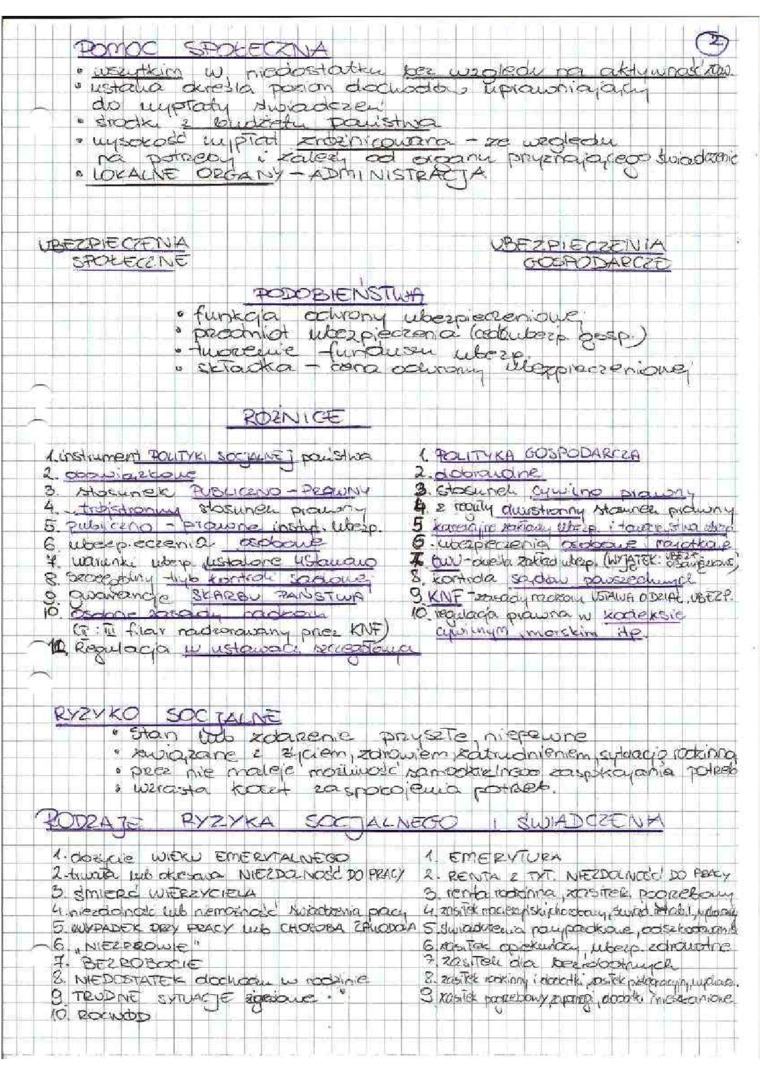 2
POMOC SPOŁECZNA
• wszystkim w niedostatku bez względu na aktywność zaw.
• ustawa określa poziom dochodów uprawniający
do wypłaty świadczeń
• środki z budżetu państwa
• wysokość wypłat zróżnicowana - ze względu
na potrzeby i zależy od organu przyznającego świadczenie
• LOKALNE ORGANY - ADMINISTRACJA
UBEZPIECZENIA UBEZPIECZENIA
SPOŁECZNE GOSPODARCZE
PODOBIEŃSTWA
• funkcja ochrony ubezpieczeniowej
• przedmiot ubezpieczenia gosp.)
• tworzenie funduszu ubezp.
• składka - cena ochrony ubezpieczeniowej
RÓŻNICE
1. instrument POLITYKI SOCJALNEJ państwa 1. POLITYKA GOSPODARCZA
2. obowiązkowe 2. dobrowolne
3. stosunek PUBLICZNO - PRAWNY 3. stosunek cywilno prawny
4. trójstronny stosunek prawny 4. z reguły dwustronny stosunek prawny
5. publiczno - prawne instyt. ubezp. 5. zakłady ubezp. i
6. ubezpieczenia osobowe 6. ubezpieczenia osobowe majątkowe
7. warunki ubezp. ustalone ustawowo 7. OWU - określa zakład ubezp. (WYJĄTEK: UBEZP.
8. szczególny tryb kontroli sądowej 8. kontrola sądów powszechnych
9. gwarancje SKARBU PAŃSTWA 9. KNF - zasady nadzoru USTAWA O DZIAŁ. UBEZP.
10. osobne zasady nadzoru 10. regulacja prawna w kodeksie
III filar nadzorowany przez KNF) cywilnym, morskim itp.
Regulacja w ustawach
RYZYKO SOCJALNE
• stan lub zdarzenie przyszłe, niepewne
• związane z życiem, zdrowiem, zatrudnieniem, sytuacją rodzinną
• przez nie maleje możliwość samodzielnego zaspokajania potrzeb
• wzrasta koszt zaspokojenia potrzeb.
RODZAJE RYZYKA SOCJALNEGO I ŚWIADCZENIA
1. dożycie WIEKU EMERYTALNEGO 1. EMERYTURA
2. trwała lub okresowa NIEZDOLNOŚĆ DO PRACY 2. RENTA Z TYT. NIEZDOLNOŚCI DO PRACY
3. ŚMIERĆ ŻYWICIELA 3. renta rodzinna, zasiłek pogrzebowy
4. niezdolność lub niemożność świadczenia pracy 4. zasiłek macierzyński, chorobowy, świad. rehabil.,
5. WYPADEK PRZY PRACY lub CHOROBA ZAWODOWA 5. świadczenia powypadkowe, odszkodowania
6. „NIEZDROWIE" 6. zasiłek opiekuńczy, ubezp. zdrowotne
7. BEZROBOCIE 7. zasiłek dla bezrobotnych
8. NIEDOSTATEK dochodu w rodzinie 8. zasiłek rodzinny i dodatki, zasiłek pielęgnacyjny,
9. TRUDNE SYTUACJE życiowe 9. zasiłek pogrzebowy, dodatki mieszkaniowe
10. ROZWÓD